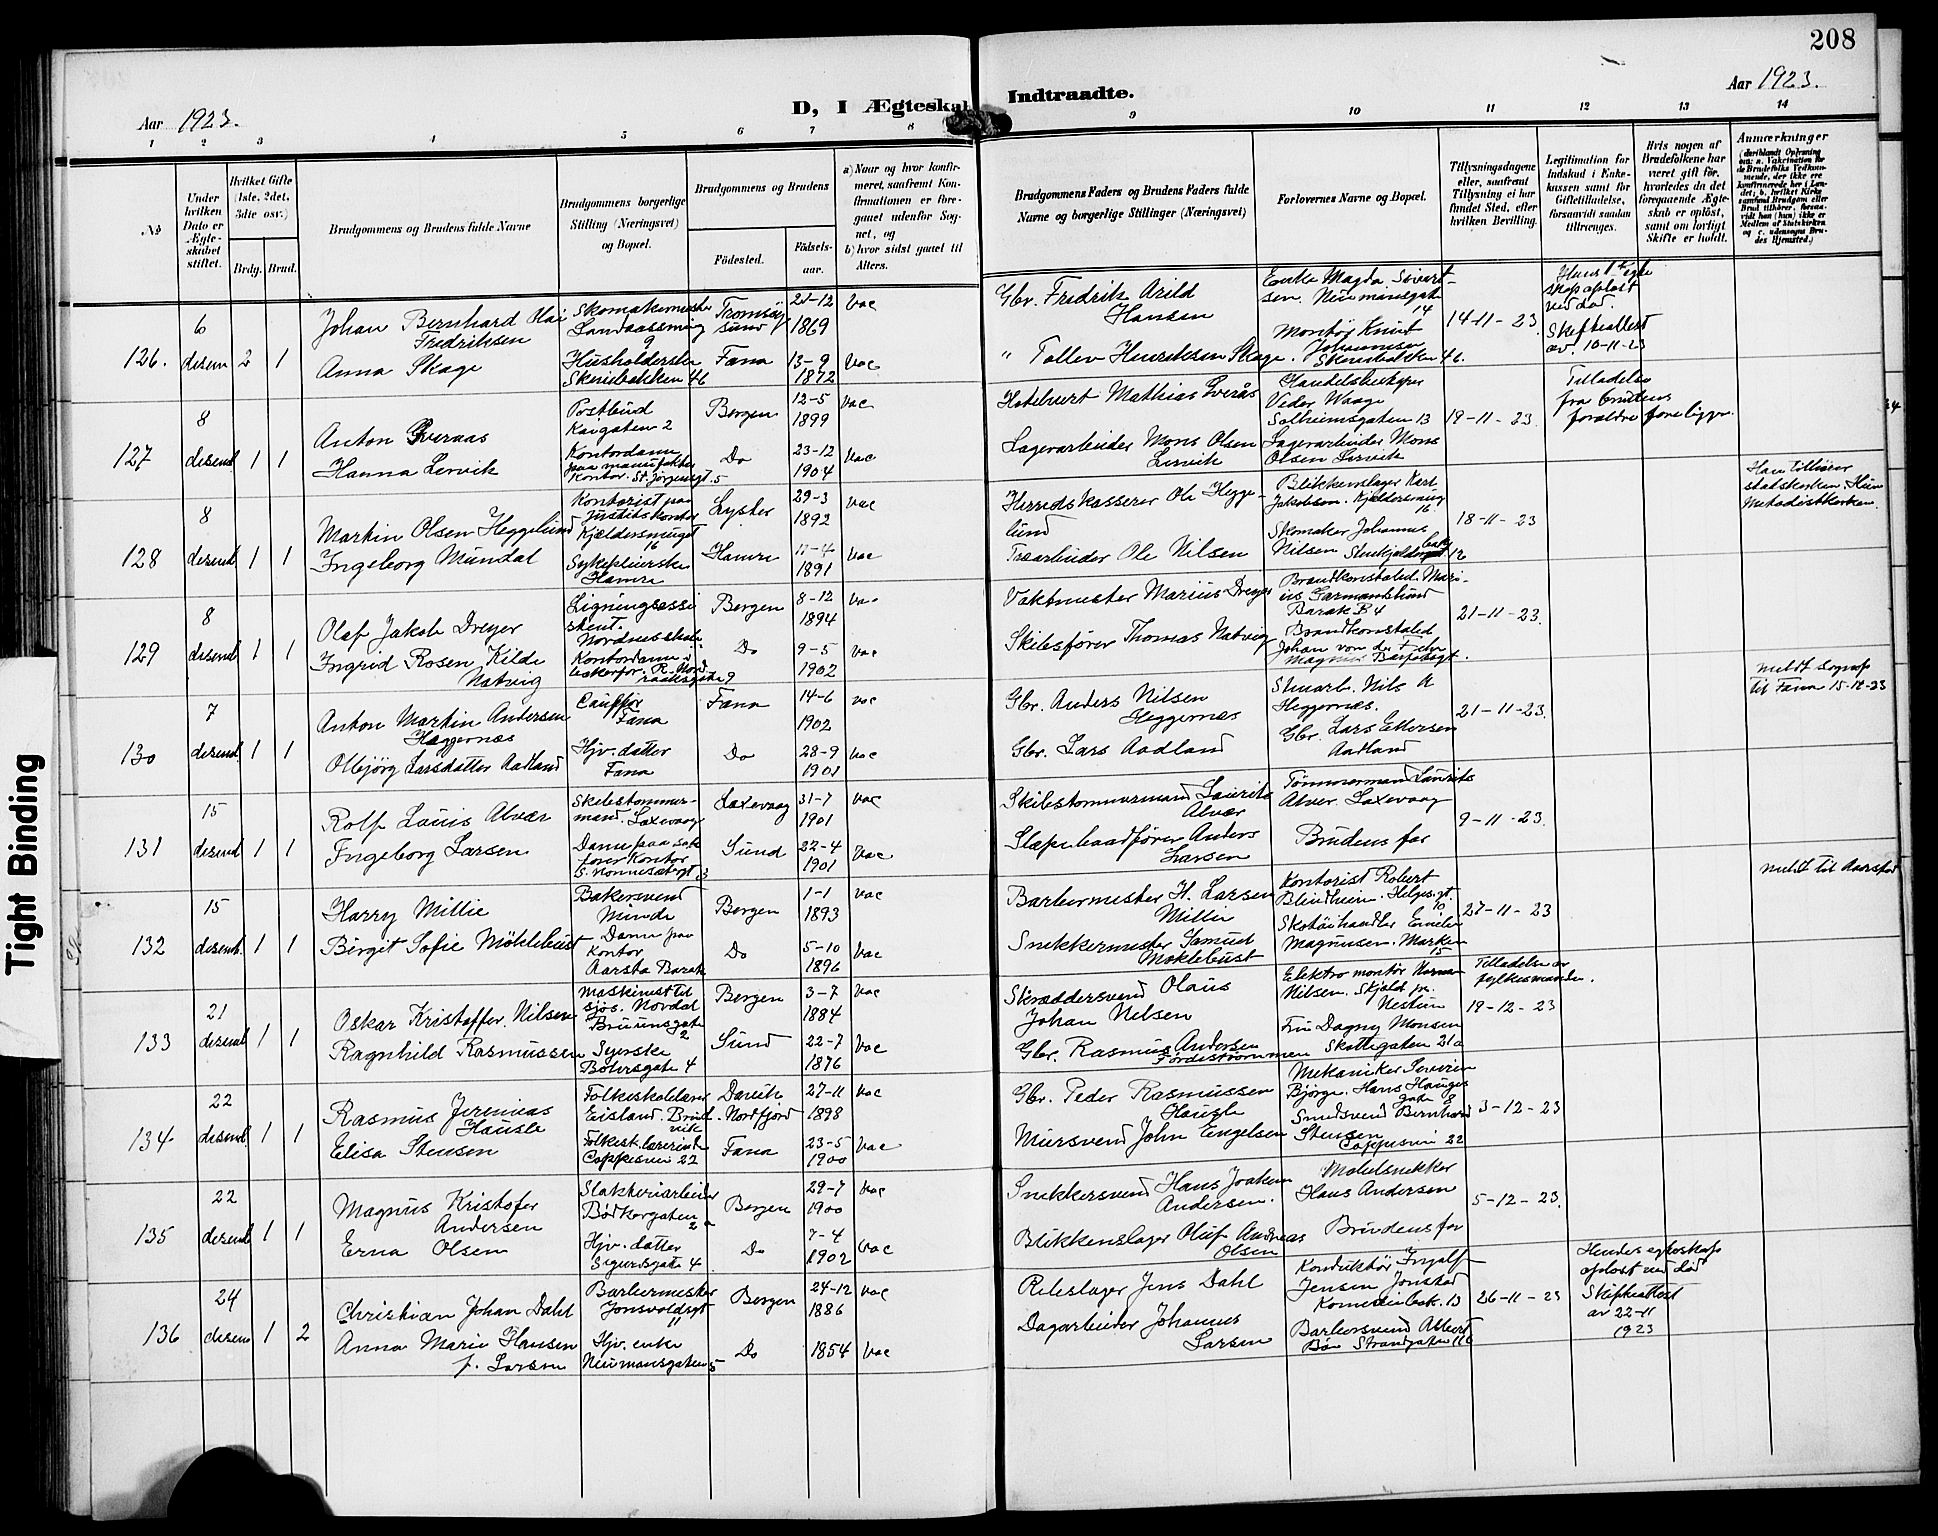 208
Aar 1923.
D, I Ægteskab Indtraadte.
Aar 1923.
1 2 3 4 5 6 7 8 9 10 11 12 13 14
No
Under hvilken Dato er Ægteskabet stiftet.
Hvilket Gifte (1ste, 2det, 3die osv.)
Brdg. Brud.
Brudgommens og Brudens fulde Navne
Brudgommens borgerlige Stilling (Næringsvei) og Bopæl.
Brudgommens og Brudens
Födested. Födsels-aar.
a) Naar og hvor konfirmeret, saafremt Konfirmationen er foregaaet udenfor Sognet, og
b) hvor sidst gaaet til Alters.
Brudgommens Faders og Brudens Faders fulde Navne og borgerlige Stillinger (Næringsvei)
Forlovernes Navne og Bopæl.
Tillysningsdagene eller, saafremt Tillysning ei har fundet Sted, efter hvilken Bevilling.
Legitimation for Indskud i Enkekassen samt for Giftetilladelse, forsaavidt saadan tiltrænges.
Hvis nogen af Brudefolkene har været gift før, hvorledes da det foregaaende Ægteskab er oplöst, samt om lovligt Skifte er holdt.
Anmærkninger
126. 6 desem 2 1
Johan Bernhard Olai Fredriksen
Skomakermester Landaassmug 9
Tromsøysund 21-12 1869 Vac
Gbr. Fredrik Arild Hansen
Enke Magda Sivertsen. Neumansgate 14
14-11-23.
Hans 1ste egteskap opløst ved død Skifteattest av. 10-11-23
Anna Skage
Husholderske Skivebakken 46
Fana 13-9 1872 Vac
" Tollev Henriksen Skage.
Montør Knut Johannesen Skivebakken 46.
127 8 desemb 1 1
Anton Sveraas
Postbud Kaigaten 2
Bergen 12-5 1899 Vac
Hotelvert Mathias Sverås
Solheimsgaten 13
19-11-23.
Tilladelse fra brudens foreldre foreligger.
Hanna Lervik
Kontordame paa manufaktur Kontor. St. Jörgensgt. 5
Do 23-12 1904 Vac
Lagerarbeider Mons Olsen Lervik
Lagerarbeider Mons Olsen Lervik
128 8 desemb 1 1
Martin Olsen Heggelund
Kontorist paa Justitskontor Kjældersmuget 16
Lyster 29-3 1892 Vac
Herredskasserer Ole Heggelund
Blikkenslager Karl Jakobsen. Kjeldersmug 16
18-11-23
Han tilhører statskirken. Hun Metodistkirken.
Ingeborg Mundal
Sykepleierske Hamre
Hamre 11-4 1891 Vac
Træarbeider Ole Nilsen
Skomaker Johannes Nilsen 12
129 8 desemb 1 1
Olaf Jakob Dreyer
Ligningsassistent. Nordnesskole
Bergen 8-12 1894 Vac
Vaktmester Marius Dreyer
Brandkonstabel. Marius Garmanslund Barak B 4
21-11-23.
Ingrid Rosen Kilde Natvig
Kontordame i R. Nordraaksgate 9
Do 9-5 1902 Vac
Skibsfører Thomas Natvig
Brandkonstabel Johan von der Fehr Magnus Barfotsgt.
130 7 desemb. 1 1
Anton Martin Andersen Heggernæs
Cauffør Fana
Fana 14-6 1902 Vac
Gbr. Anders Nilsen Heggernæs
Stuarb. Nils A Heggernæs.
21-11-23.
meldt Sognep til Fana 15-12-23
Olbjörg Larsdatter Aadland
Hjv. datter Fana
Do 28-9 1901 Vac
Gbr. Lars Aadland
Gbr. Lars Ellersen Aadland
131 15 desemb 1 1
Rolf Louis Alvær
Skibstømmermand. Laxevaag
Laxevaag 31-7 1901 Vac
Skibstømmermand Laurits Alvær
Tømmermand Laurits Alver. Laxevaag
9-11-23.
Ingeborg Larsen
Dame paa Kontor 3
Sund 22-4 1901 Vac
Slæpebaadfører Anders Larsen
Brudens far
meldt til Aarstad
132 15 desemb. 1 1
Harry Millie
Bakersvend Minde
Bergen 1-1 1893 Vac
Barbermester H. Larsen Millie
Kontorist Robert Blindheim. Helgesgt. 10
27-11-23
Birgit Sofie Möklebust
Dame paa Kontor Aarsta Barak
Do 5-10 1896 Vac
Snekkermester Samuel Moklebust
Skotöihandler Emelie Magnusen. Marken 15
133 21 desemb 1 1
Oskar Kristoffer. Nilsen
Maskinist til sjøs. Nordal Brunnsgate 2
Bergen 3-7 1884 Vac
Skræddersvend Olaus Johan Nilsen
Elektro montör Nilsen. Skjold pr. Nestun
Tilladelse av fylkesmanden. 19-12-23
Ragnhild Rasmussen
Syerske Bøhersgate 4
Sund 22-7 1876 Vac
Gbr. Rasmus Andersen
Fru Dagny Monsen Skottegaten 21a
134 22 desemb 1 1
Rasmus Jeremias Hausle
Folkeskolelærer Eisland. Bruvik
Davik Nordfjord 27-11 1898 Vac
Gbr. Peder Rasmussen Hausle
Mekaniker Severin Björge. Hans Hauges gate 8
3-12-23
Elisa Stensen
Folkesk. lærerinde Cappesvei 22
Fana 23-5 1900 Vac
Mursvend John Engelsen
Smedsvend Bernhard Stensen Cappesvei 22
135 22 desemb 1 1
Magnus Kristofer Andersen
Slakteriarbeider Bødkergaten 2a
Bergen 29-7 1900 Vac
Snekkersvend Hans Joakim Andersen.
Møbelsnekker Hans Andersen
5-12-23.
Erna Olsen
Hjv. datter Sigurdsgate 4
Do 7-4 1902 Vac
Blikkenslager Oluf Andreas Olsen
Brudens far
136 24 desem 1 2
Christian Johan Dahl
Barbermester Jonsvoldsgt 11
Bergen 24-12 1886 Vac
Rebslager Jens Dahl
Konduktör Ingolf Jensen Jonstad Komediebak. 13
26-11-23
Hendes egteskap opløst ved død Skifteattest av 22-11 1923
Anna Marie Hansen f. Larsen
Hjv. enke Neumansgaten 5
Do 1854 Vac
Dagarbeider Johannes Larsen
Barbersvend Albert Bøe Strandgaten 116
Tight Binding